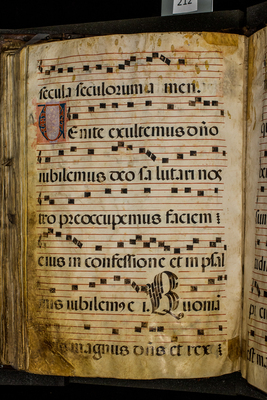 212
secula seculorum a men.
Venite exultemus dño
iubilemus deo sa lutari nos
tro preoccupemus faciem
eius in confessione et in psal
mis iubilem9 e i. Quoni
magnus dñs et rex